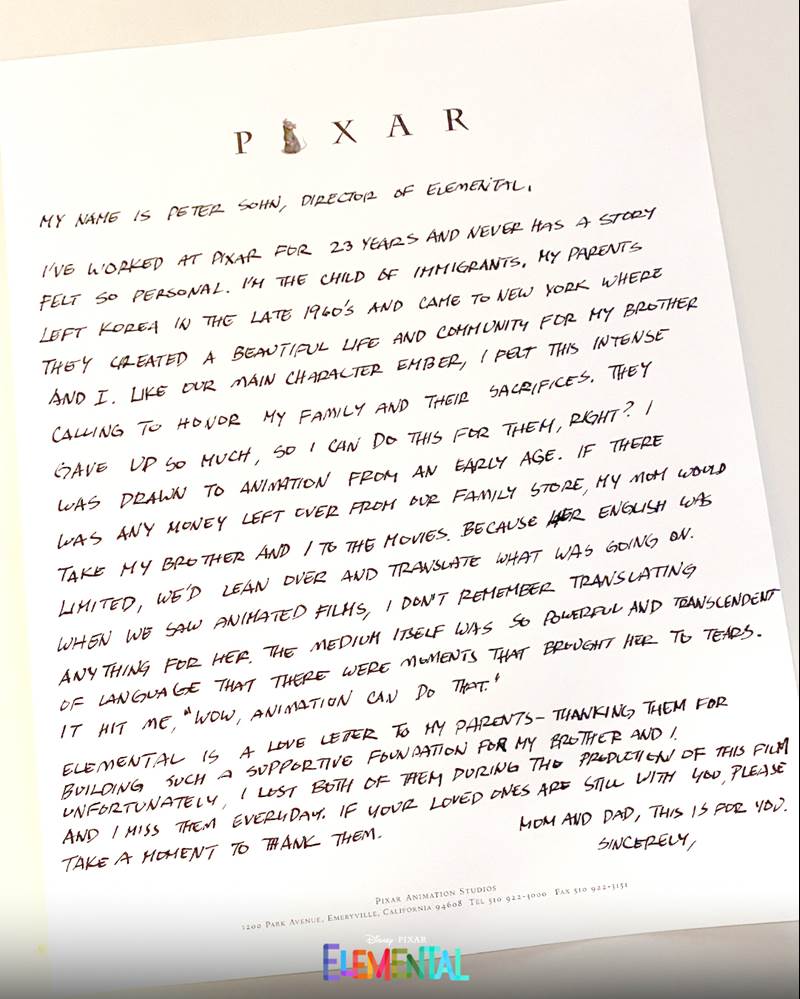 PIXAR
MY NAME IS PETER SOHN, DIRECTOR OF ELEMENTAL.
I'VE WORKED AT PIXAR FOR 23 YEARS AND NEVER HAS A STORY
FELT SO PERSONAL. I'M THE CHILD OF IMMIGRANTS. MY PARENTS
LEFT KOREA IN THE LATE 1960'S AND CAME TO NEW YORK WHERE
THEY CREATED A BEAUTIFUL LIFE AND COMMUNITY FOR MY BROTHER
AND I. LIKE OUR MAIN CHARACTER EMBER, I FELT THIS INTENSE
CALLING TO HONOR MY FAMILY AND THEIR SACRIFICES. THEY
GAVE UP SO MUCH, SO I CAN DO THIS FOR THEM, RIGHT? I
WAS DRAWN TO ANIMATION FROM AN EARLY AGE. IF THERE
WAS ANY MONEY LEFT OVER FROM OUR FAMILY STORE, MY MOM WOULD
TAKE MY BROTHER AND I TO THE MOVIES. BECAUSE HER ENGLISH WAS
LIMITED, WE'D LEAN OVER AND TRANSLATE WHAT WAS GOING ON.
WHEN WE SAW ANIMATED FILMS, I DON'T REMEMBER TRANSLATING
ANYTHING FOR HER. THE MEDIUM ITSELF WAS SO POWERFUL AND TRANSCENDENT
OF LANGUAGE THAT THERE WERE MOMENTS THAT BROUGHT HER TO TEARS.
IT HIT ME, "WOW, ANIMATION CAN DO THAT."
ELEMENTAL IS A LOVE LETTER TO MY PARENTS - THANKING THEM FOR
BUILDING SUCH A SUPPORTIVE FOUNDATION FOR MY BROTHER AND I.
UNFORTUNATELY, I LOST BOTH OF THEM DURING THE PRODUCTION OF THIS FILM
AND I MISS THEM EVERYDAY. IF YOUR LOVED ONES ARE STILL WITH YOU, PLEASE
TAKE A MOMENT TO THANK THEM.
MOM AND DAD, THIS IS FOR YOU.
SINCERELY,
PIXAR ANIMATION STUDIOS
1200 PARK AVENUE, EMERYVILLE, CALIFORNIA 94608 TEL 510 922-3000 FAX 510 922-3151
Disney · PIXAR
ELEMENTAL